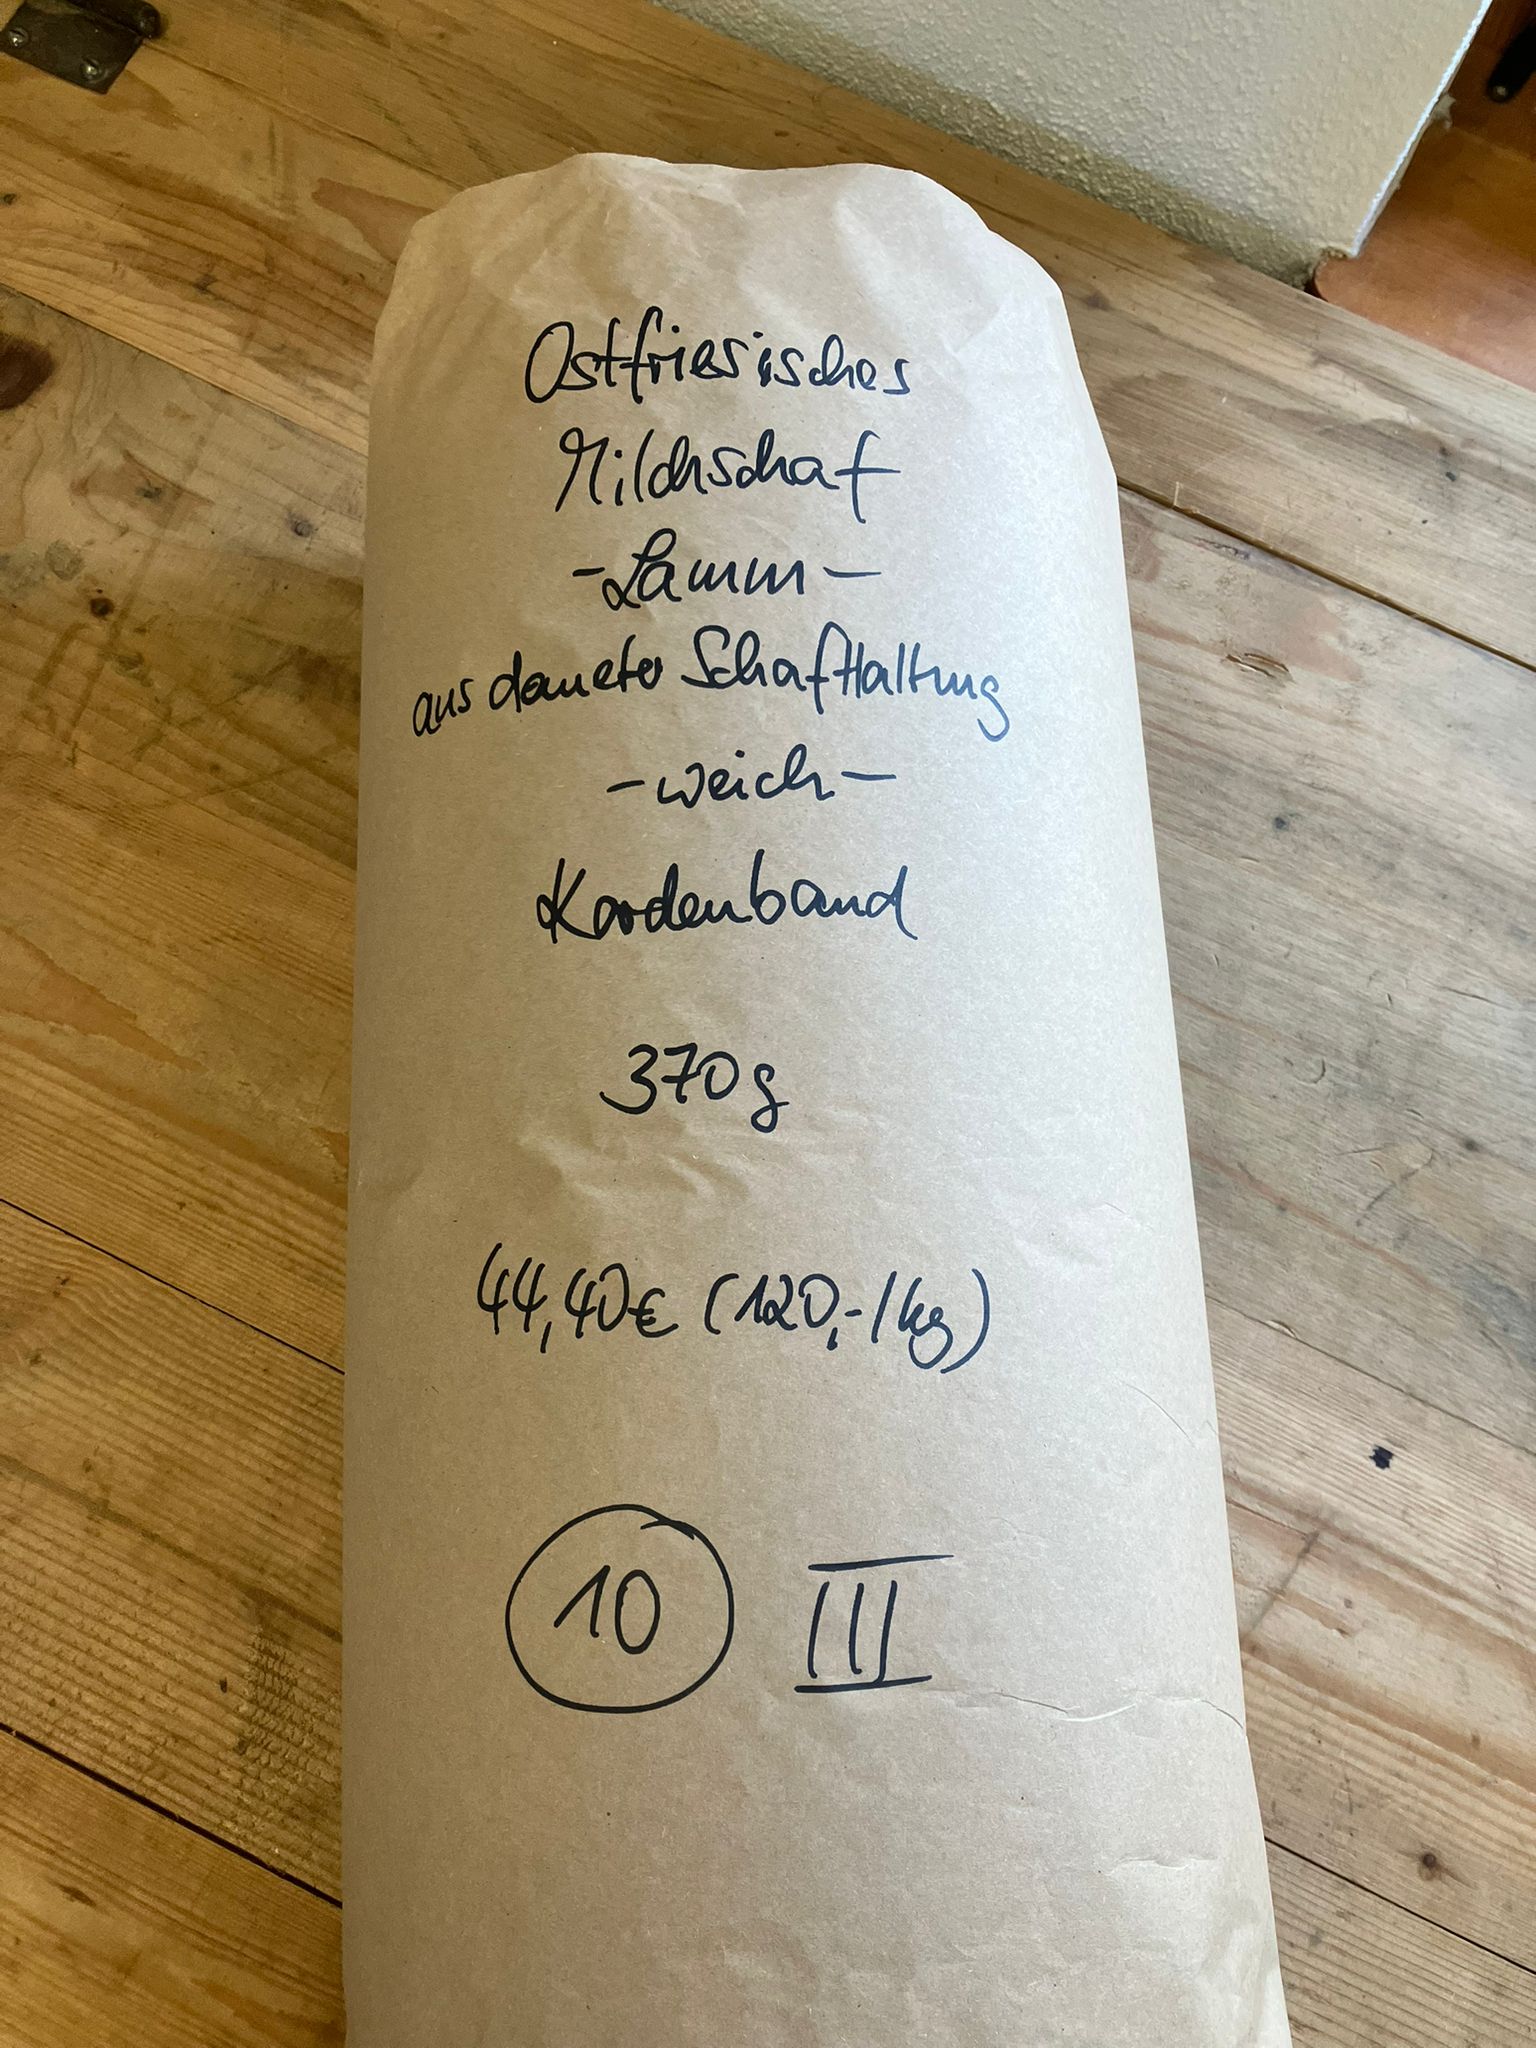 Ostfriesisches
Milchschaf
-Lamm-
aus demeter SchafHaltung
-weich-
Kardenband
370g
44,40€ (120,-/kg)
10 III